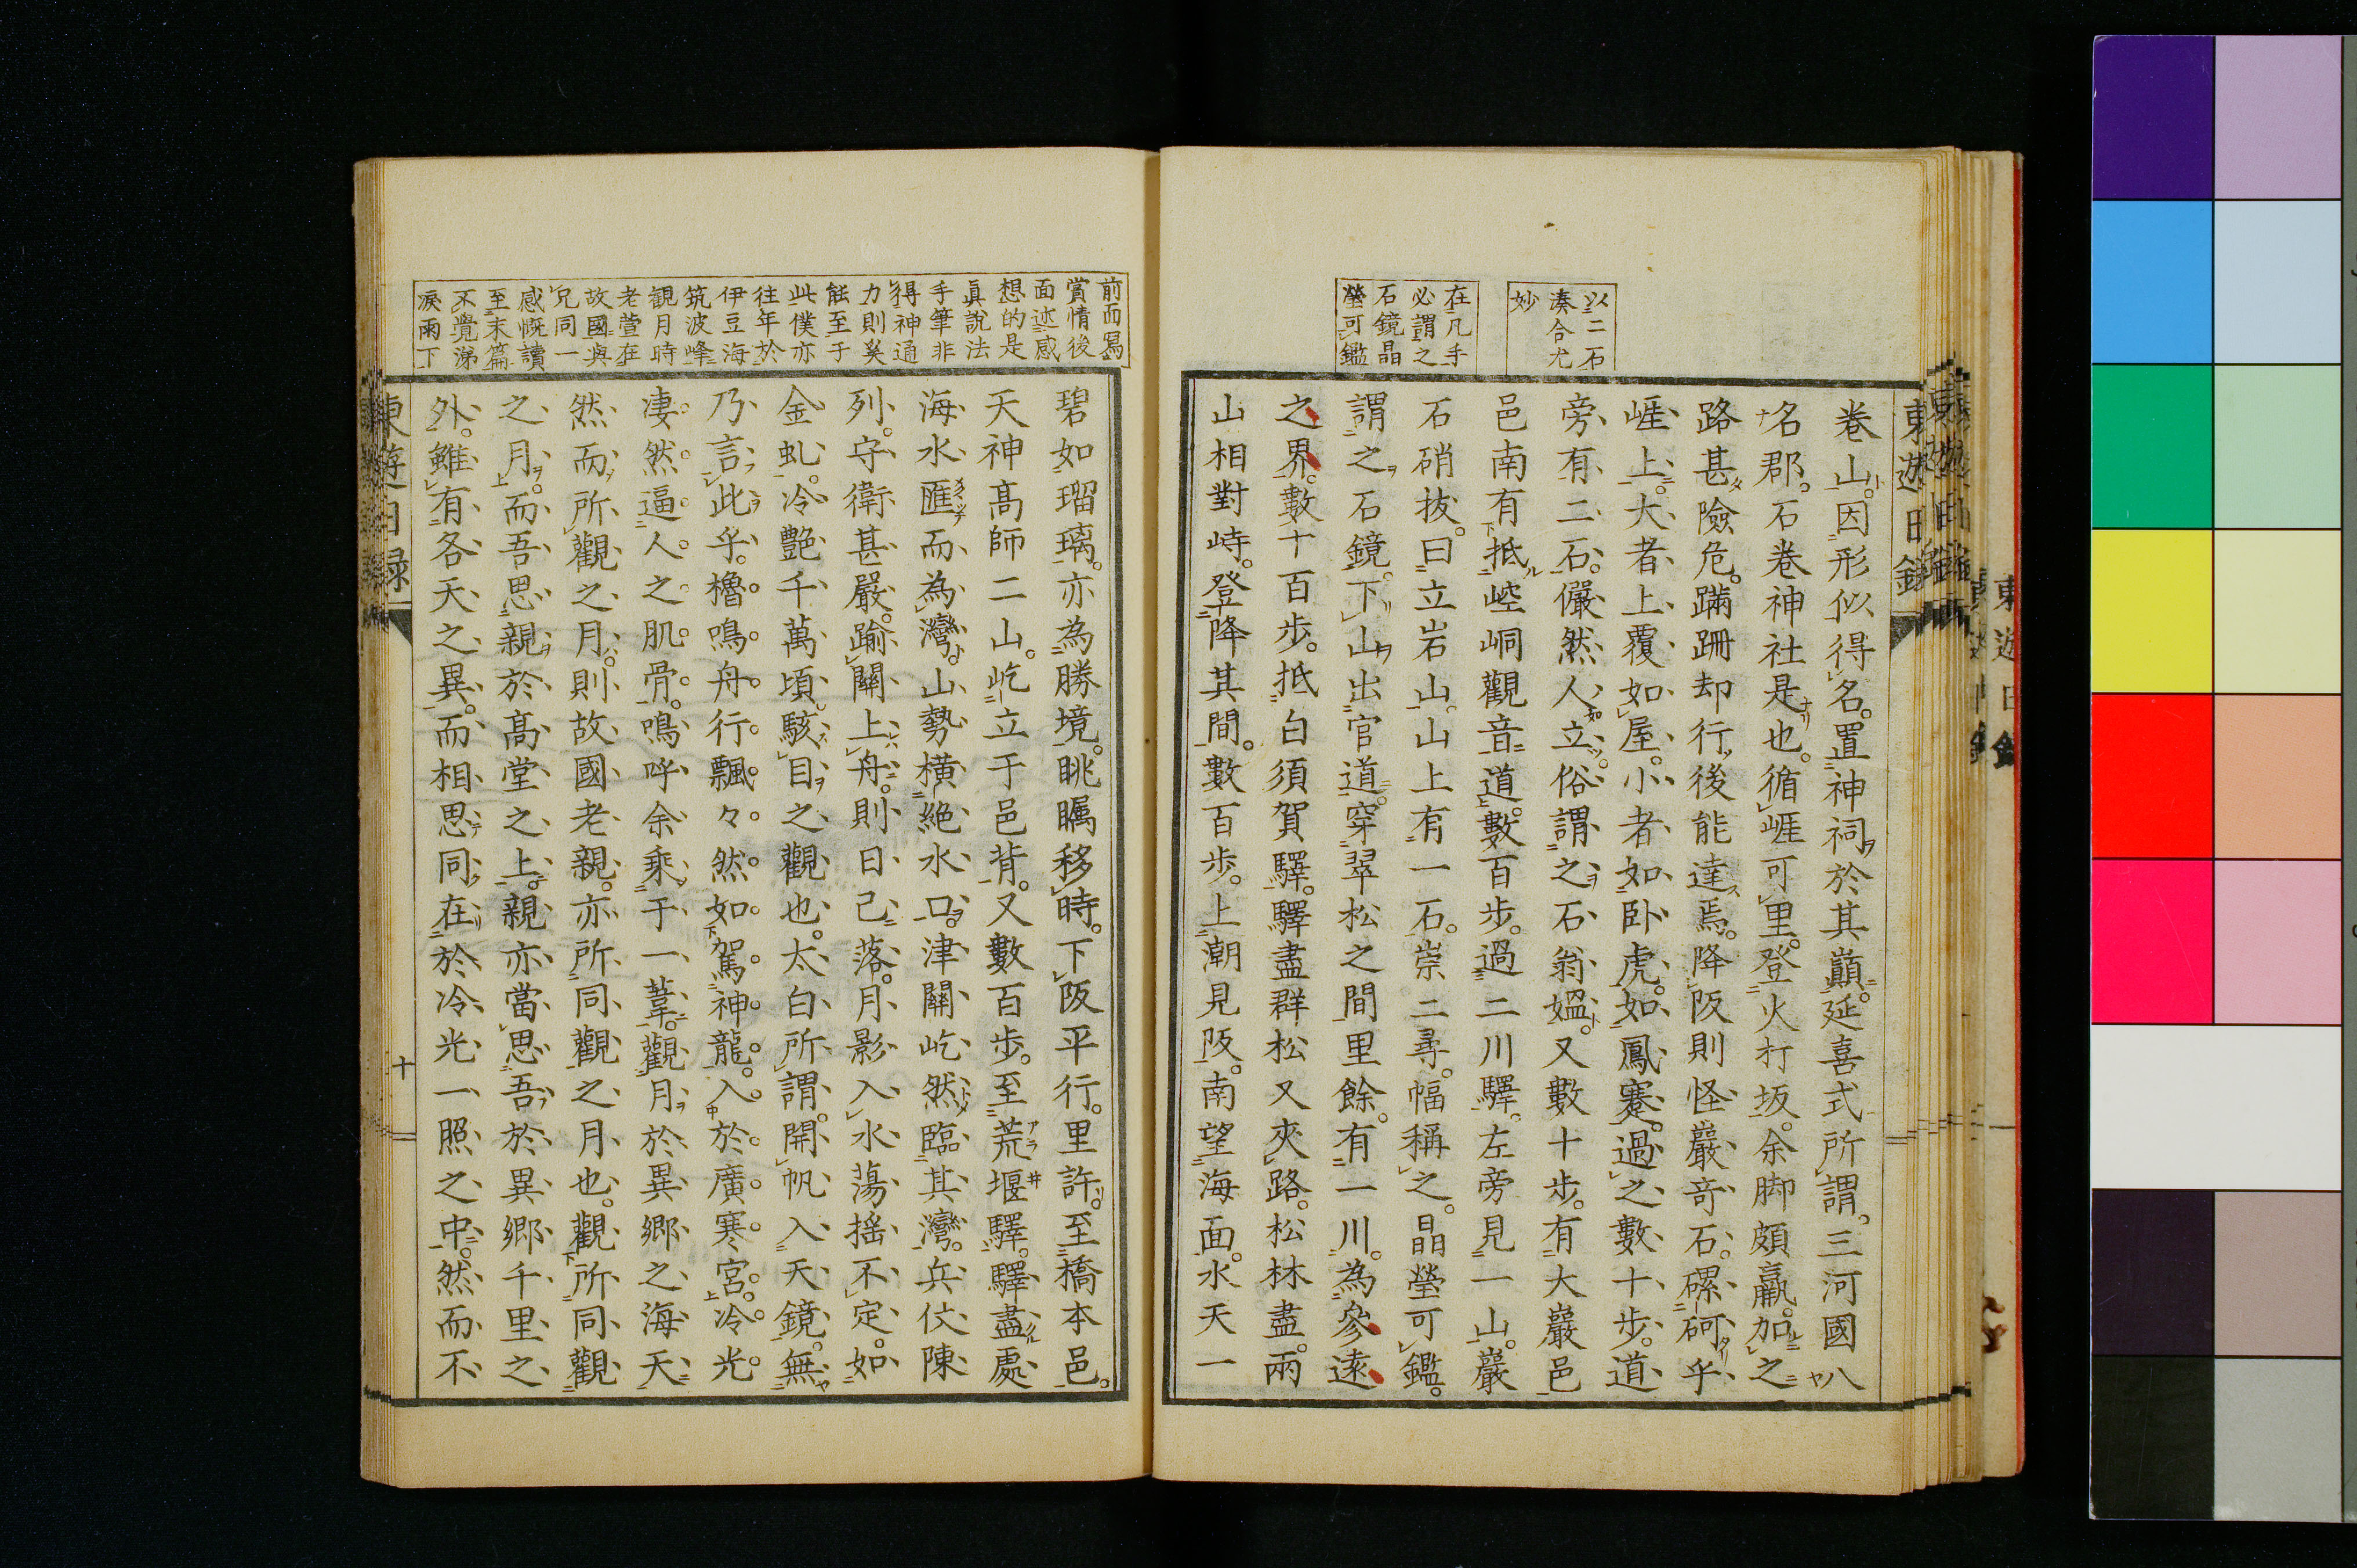 以二石
湊合尤
妙
在凡手
必謂之
石鏡晶
瑩可鑑
卷山。因形似得名。置神祠於其巔。延喜式所謂。三河國八
名郡。石卷神社是也。循崕可里。登火打坂。余脚頗羸。加之
路甚險危。蹣跚却行後能達焉。降阪則怪巖奇石。磥砢乎
崕上。大者上覆如屋。小者如卧虎。如鳳騫。過之數十步。道
旁有二石。儼然人立。俗謂之石翁媼。又數十步。有大巖邑
邑南有抵崆峒觀音道。數百步。過二川驛。左旁見一山。巖
石硝拔。曰立岩山。山上有一石。崇二尋。幅稱之。晶瑩可鑑。
謂之石鏡。下山出官道。穿翠松之間里餘。有一川。為參遠
之界。數十百步。抵白須賀驛。驛盡群松又夾路。松林盡。兩
山相對峙。登降其間。數百步。上潮見阪。南望海面。水天一
東遊日録
前而冩
賞情後
面述感
想的是
眞說法
手筆非
得神通
力則奚
能至于
此僕亦
往年於
伊豆海
筑波峰
觀月時
老萱在
故國與
兄同一
感慨讀
至末篇
不覺涕
淚雨下
碧如瑠璃。亦為勝境。眺矚移時。下阪平行。里許。至橋本邑。
天神高師二山。屹立于邑背。又數百步。至荒堰驛。驛盡處
海水匯而為灣。山勢橫絶水口。津關屹然臨其灣。兵仗陳
列。守衛甚嚴。踰關上舟。則日已落。月影入水蕩搖不定。如
金虬。冷艷千萬頃。駭目之觀也。太白所謂。開帆入天鏡。無
乃言此乎。櫓鳴舟行飄々然如駕神龍。入於廣寒宮。冷光
凄然逼人之肌骨。嗚呼余乘于一葦。觀月於異鄉之海天
然而所觀之月。則故國老親。亦所同觀之月也。觀所同觀
之月。而吾思親於高堂之上。親亦當思吾於異鄉千里之
外。雖有各天之異。而相思同在於冷光一照之中。然而不
東遊日録
十